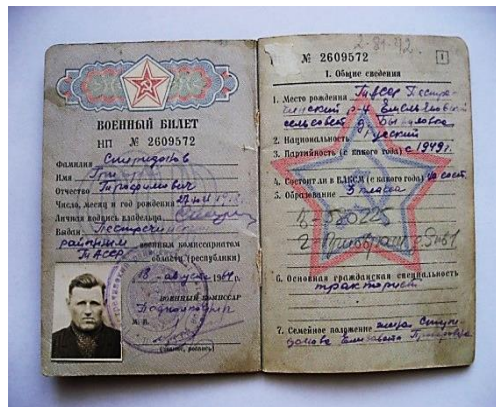 ВОЕННЫЙ БИЛЕТ
НП № 2609572
Фамилия Спиридонов
Имя
Отчество Трофимович
Число, месяц и год рождения
Личная подпись владельца
Выдан Пестречинским
районным военным комиссариатом
ТАССР области (республики)
18 августа 1964 г.
ВОЕННЫЙ КОМИССАР
Подполковник
М. П.
№ 2609572
1
1. Общие сведения
1. Место рождения ТАССР Пестре-
чинский р-н
сельсовет д.
2. Национальность русский
3. Партийность (с какого года) с 1949 г.
4. Состоит ли в ВЛКСМ (с какого года) не сост.
5. Образование 5 класса
6. Основная гражданская специальность
тракторист
7. Семейное положение жена Спири-
донова Елизавета